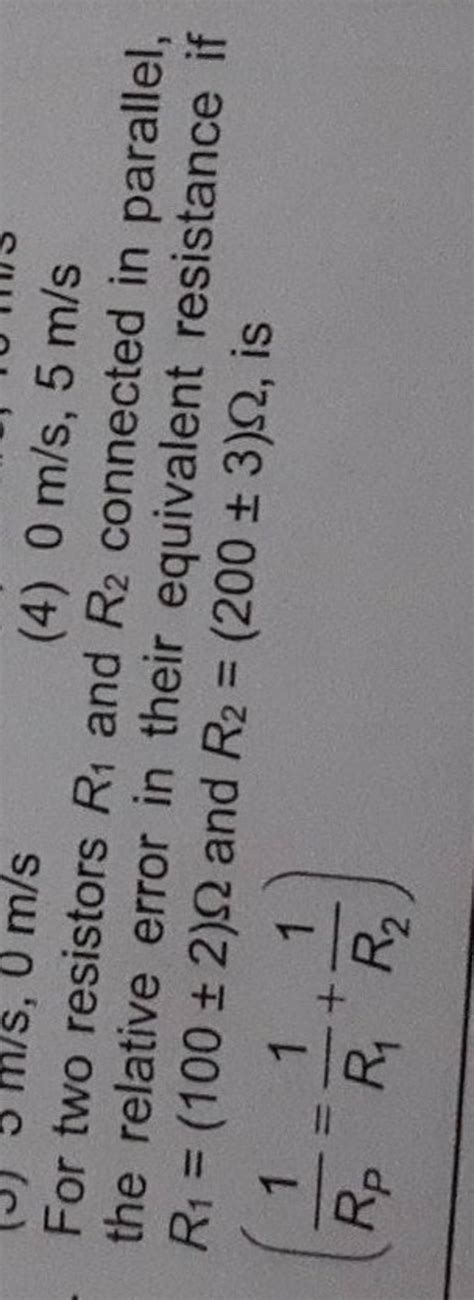 5 m/s, 0 m/s
(4) 0 m/s, 5 m/s
For two resistors R₁ and R₂ connected in parallel,
the relative error in their equivalent resistance if
R₁ = (100 ± 2)Ω and R₂ = (200 ± 3)Ω, is
(1/Rₚ = 1/R₁ + 1/R₂)